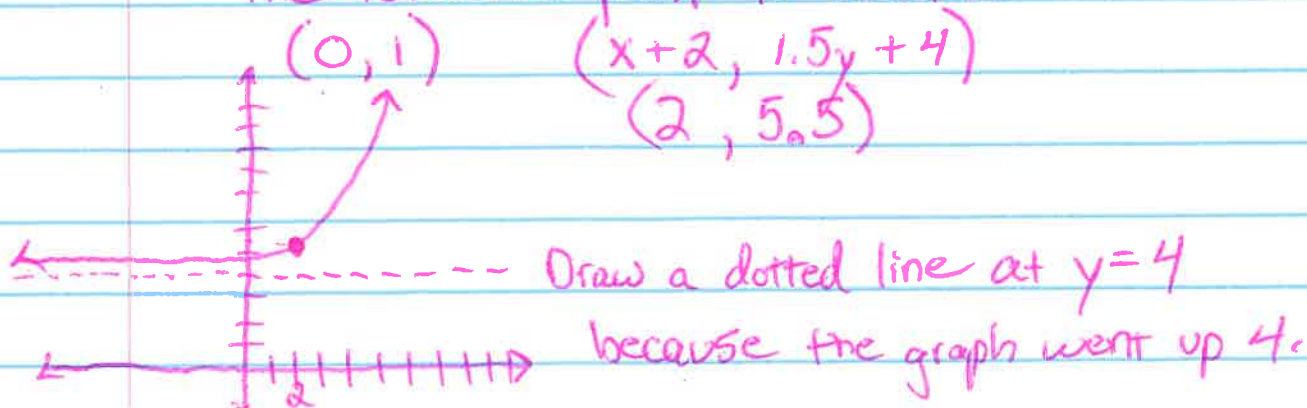 (0, 1)
(x+2, 1.5y + 4)
(2, 5.5)
Draw a dotted line at y=4
because the graph went up 4.
2